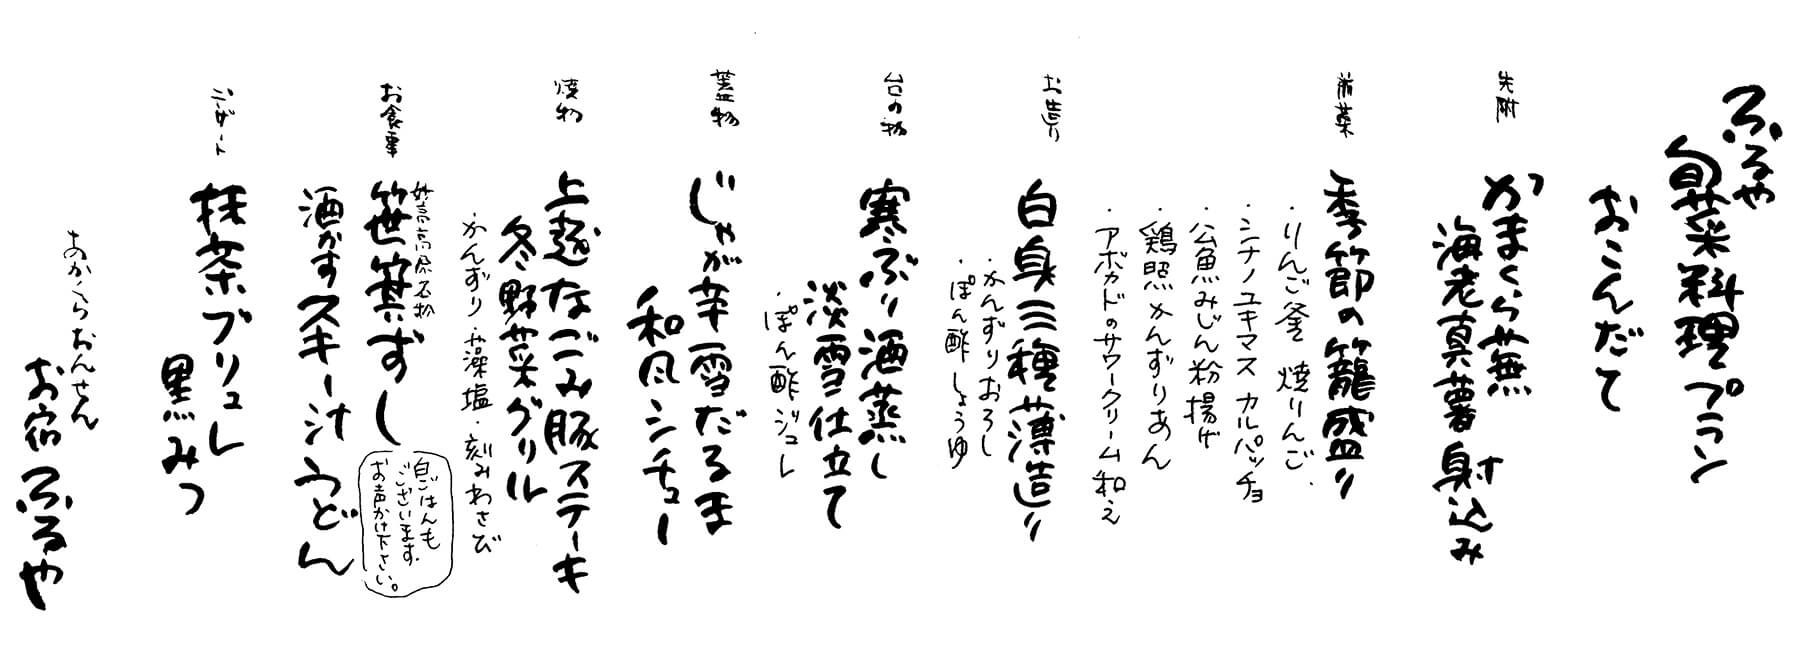 ふるや
旬菜料理プラン
おこんだて
先附
かまくら蕪
海老真薯 射込み
前菜
季節の籠盛り
・りんご釜 焼りんご
・シナノユキマス カルパッチョ
・公魚みじん粉揚げ
・鶏照かんずりあん
・アボカドのサワークリーム和え
お造り
白身三種薄造り
・かんずりおろし
・ぽん酢しょうゆ
台の物
寒ぶり酒蒸し
淡雪仕立て
・ぽん酢ジュレ
蓋物
じゃが辛雪だるま
和風シチュー
焼物
上越なごみ豚ステーキ
冬野菜グリル
・かんずり・藻塩・刻みわさび
お食事
妙高高原名物
笹箕ずし
白ごはんも
ございます。
お声かけ下さい。
酒かすスキー汁うどん
デザート
抹茶ブリュレ
黒みつ
あかくらおんせん
お宿ふるや